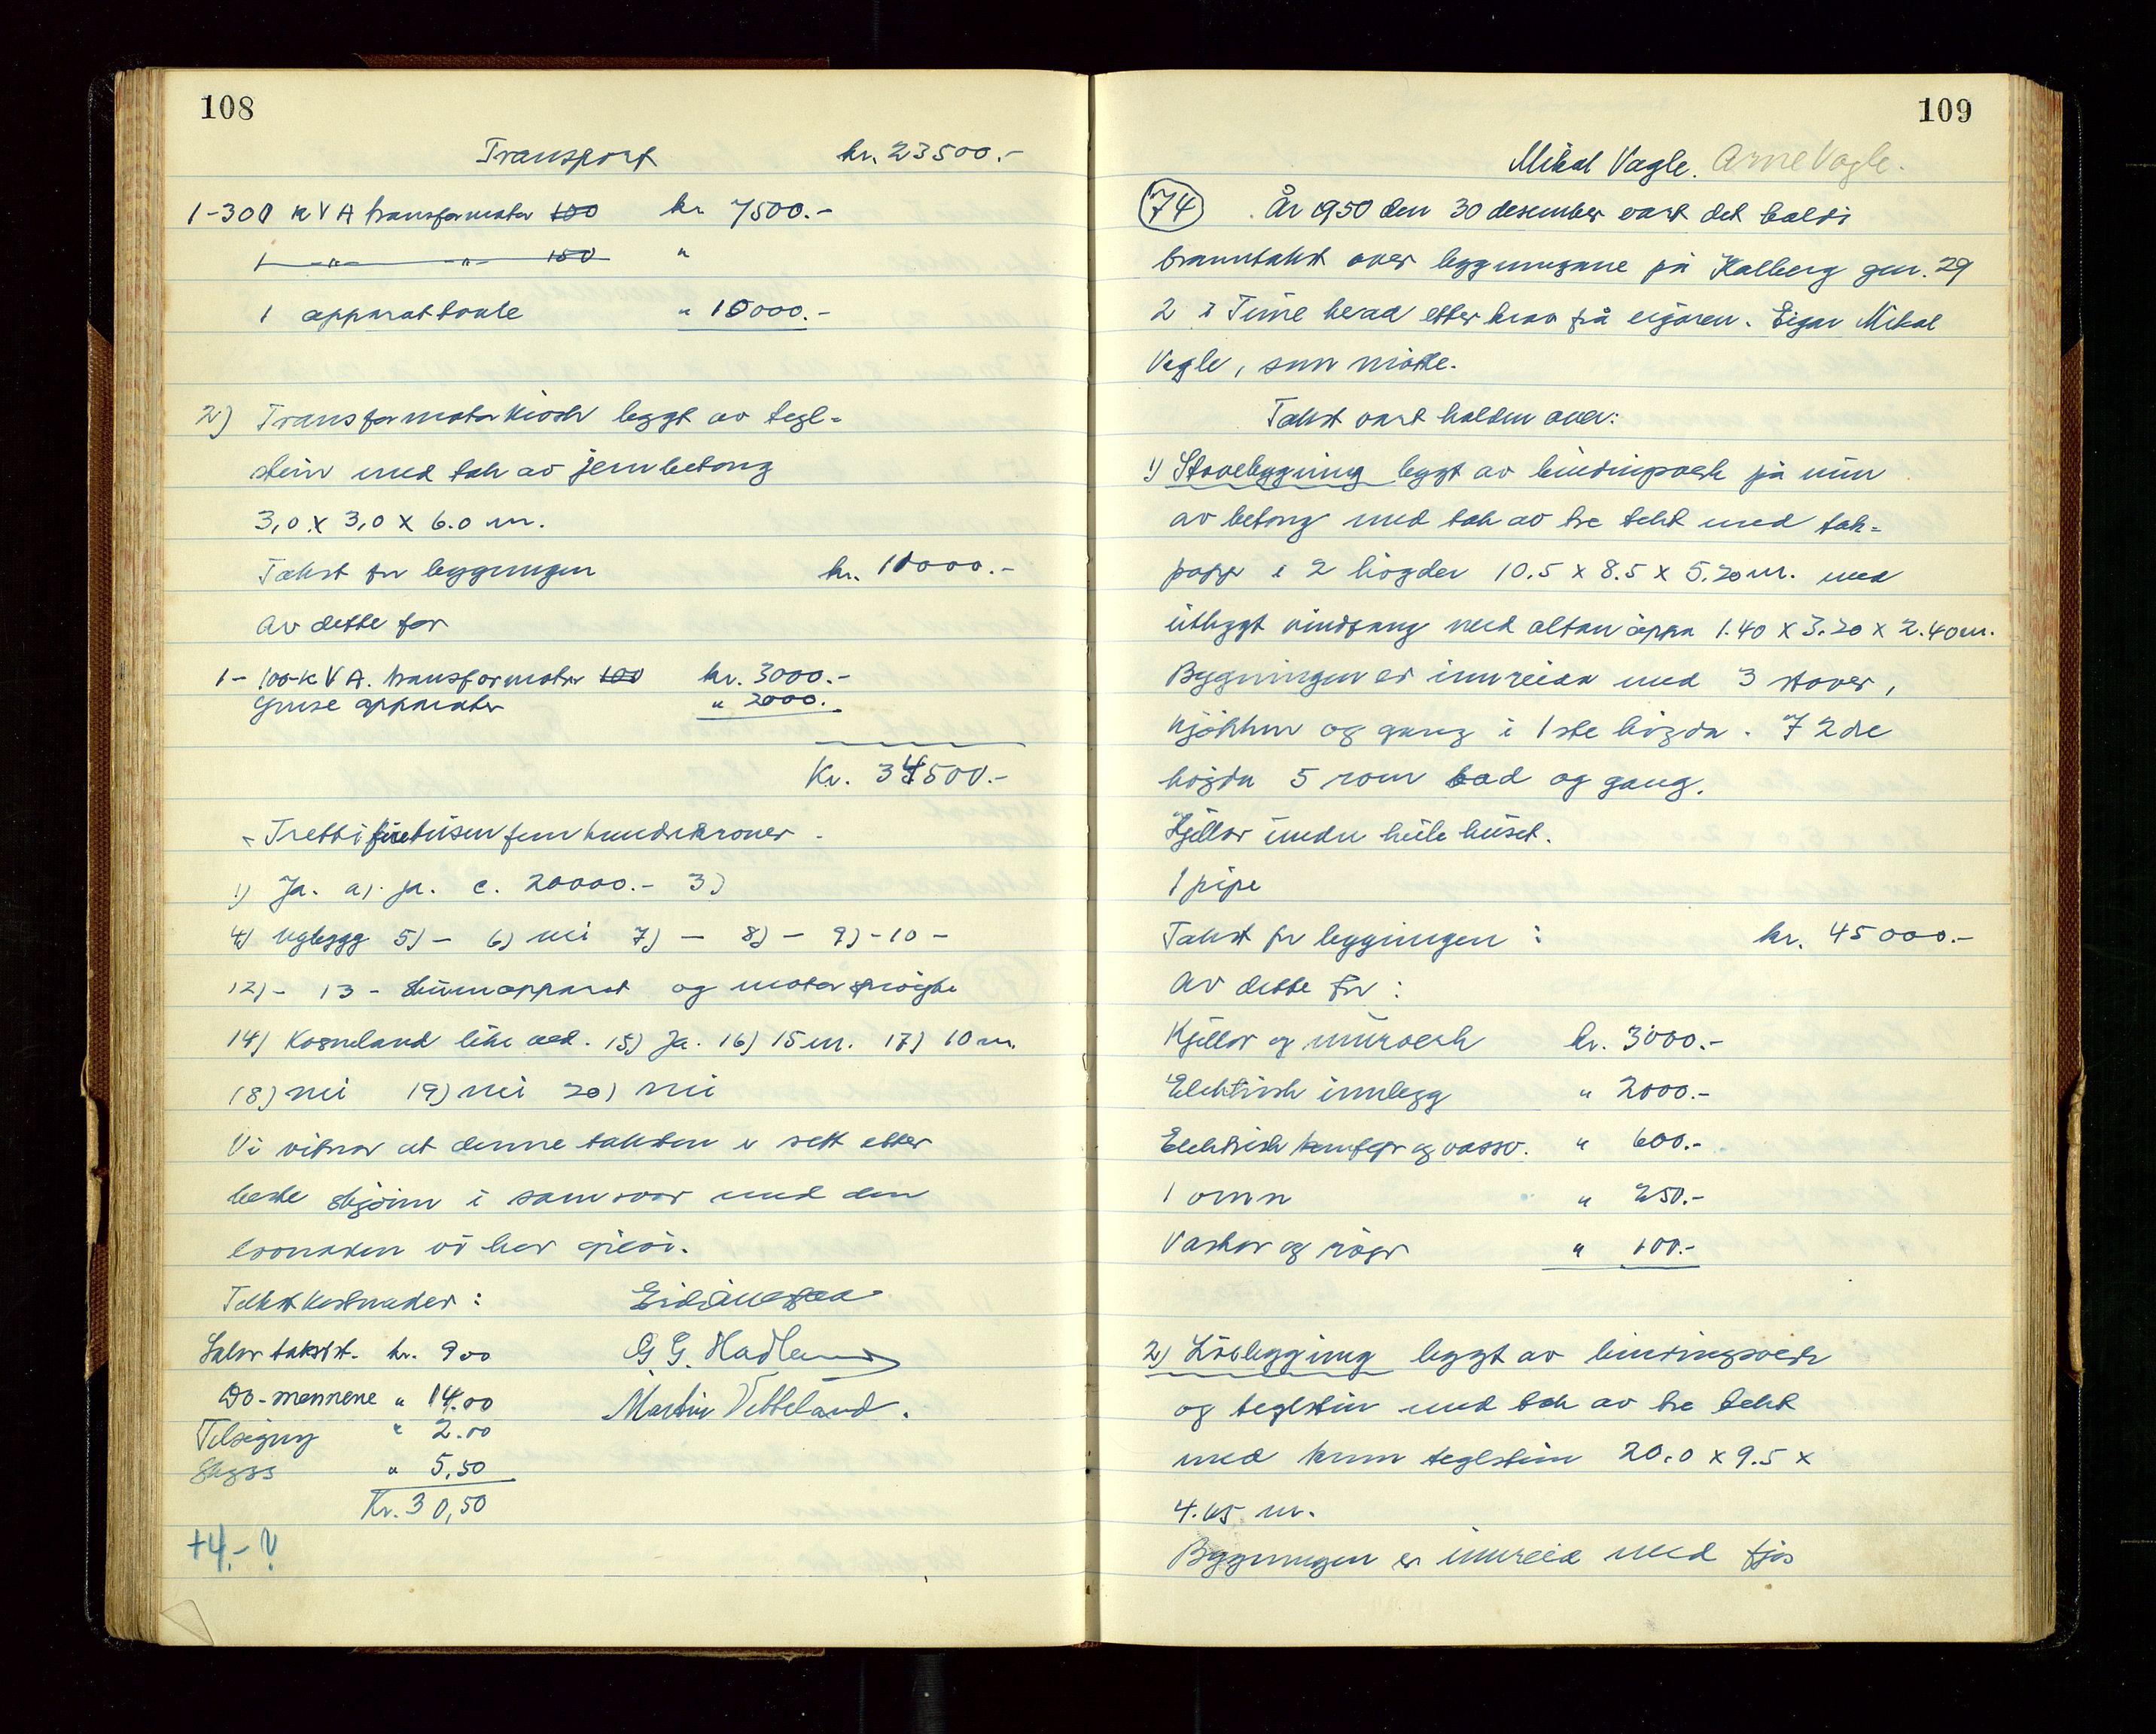 108
Transport kr. 23500.-
1-300 KVA transformator 100 kr 7500.-
1 -"- -"- 150 "
1 apparattavle " 10000.-
2) Transformatorkiosk bygt av tegl-
stein med tak av jernbetong
3,0 x 3,0 x 6.0 m.
Takst for bygningen kr. 11000.-
Av dette for
1- 100-KVA. transformator 100 kr. 3000.-
Ymse apparater " 2000.-
Kr. 34500.-
- Trettifiretusen fem hundre kroner -
1) Ja. a). ja. c. 20000.- 3)
4) Nybygg 5) - 6) nei 7) - 8) - 9) - 10 -
12) - 13 - Skumapparat og motorsprøyte
14) Kverneland like ved. 15) Ja. 16) 15 m. 17) 10 m.
18) nei 19) nei 20) nei
Vi vitnar at denne taksten er sett etter
beste skjønn i samsvar med den
lovnaden vi har gjevi.
Takstkostnader:
Salær takstst. kr. 9.00 G. G. Hadland
Do- mennene " 14.00 Martin Vetteland.
Tilsigjing " 2.00
Skyss " 5,50
Kr. 30,50
+4.- ?
109
Mikal Vagle. Arne Vagle.
74 År 1950 den 30 desember vart det haldi
branntakst over bygningane på Kalberg gnr. 29
2 i Time herad etter krav frå eigaren. Eigar Mikal
Vagle, som møtte.
Takst vart halden over:
1) Stovebygning bygt av bindingsverk på mur
av betong med tak av tre tekt med tak-
papp i 2 høgder 10.5 x 8.5 x 5.20 m. med
utbygt vindfang med altan oppå 1.40 x 3.20 x 2.40 m.
Bygningen er innreidd med 3 stover,
kjøkken og gang i 1ste høgda. I 2dre
høgda 5 rom bad og gang.
Kjellar under heile huset.
1 pipe
Takst for bygningen: kr. 45000.-
Av dette for:
Kjellar og murverk kr. 3000.-
Elektrisk innlegg " 2000.-
Elektrisk komfyr og vassv. " 600.-
1 omn " 250.-
Vaskar og røyr " 100.-
2) Löebygging bygt av bindingsverk
og teglstein med tak av tre tekt
med krum teglstein 20.0 x 9.5 x
4.65 m.
Bygningen er innreid med fjos